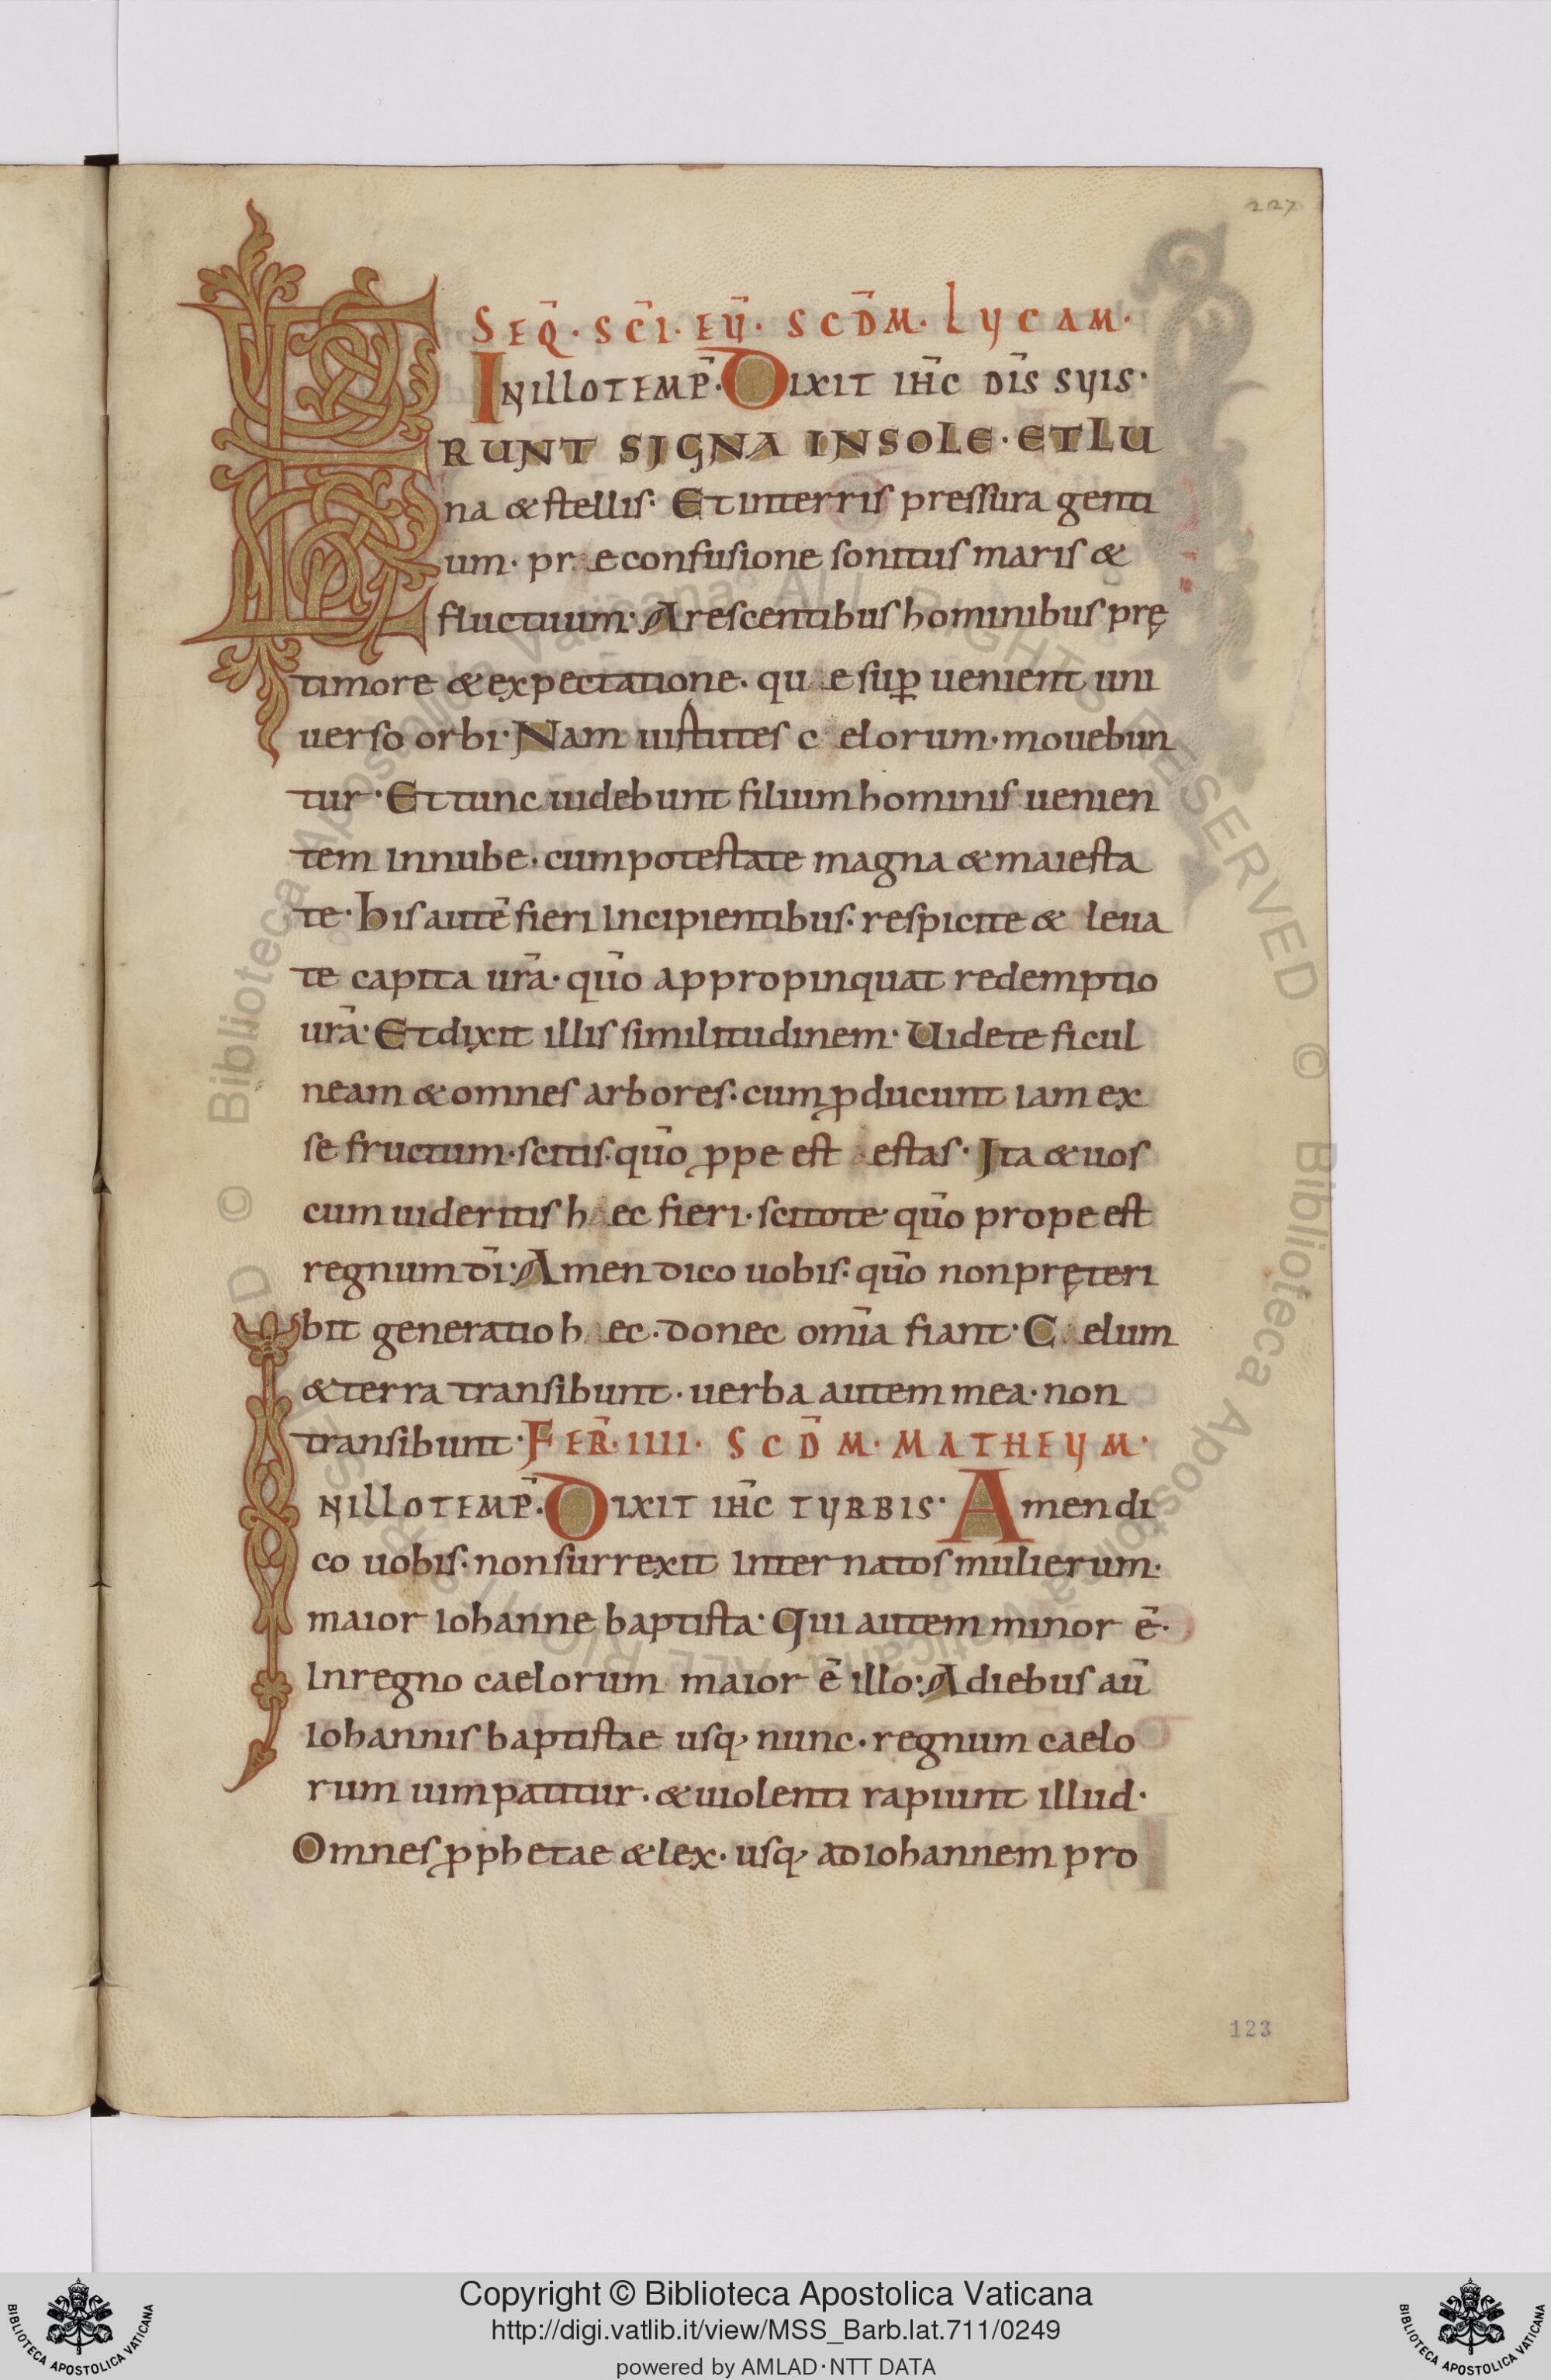 227
SEQ̄. SC̄I. EŪ. SCD̄M. LUCAM.
IN ILLO TEMP̄. DIXIT IH̄C DĪS SUIS.
ERUNT SIGNA IN SOLE. ET LU
na & stellis. Et in terris pressura genti
um. pr e confusione sonitus maris &
fluctuum. Arescentibus hominibus prę
timore & expectatione. qu e suꝑ uenient uni
uerso orbi. Nam uirtutes c elorum. mouebun
tur. Et tunc uidebunt filium hominis uenien
tem in nube. cum potestate magna & maiesta
te. His autē fieri Incipientibus. respicite & leua
te capita ur̄a. qūo appropinquat redemptio
ur̄a. Et dixit illis similitudinem. Uidete ficul
neam & omnes arbores. cum ꝓducunt iam ex
se fructum. scitis. qūo ꝓpe est estas. Ita & uos
cum uideritis h ec fieri. scitote qūo prope est
regnum dī. Amen dico uobis. qūo non pręteri
bit generatio h ec. donec omīa fiant. C elum
& terra transibunt. uerba autem mea. non
transibunt. FER̄. IIII. SCD̄M. MATHEUM.
IN ILLO TEMP̄. DIXIT IH̄C TURBIS. Amen di
co uobis. non surrexit Inter natos mulierum.
maior Iohanne baptista. Qui autem minor ē.
In regno caelorum maior ē illo. A diebus aū
Iohannis baptistae usq, nunc. regnum caelo
rum uim patitur. & uiolenti rapiunt illud.
Omnes ꝓphetae & lex. usq, ad iohannem pro
123
© Biblioteca Apostolica Vaticana ALL RIGHTS RESERVED
Copyright © Biblioteca Apostolica Vaticana
http://digi.vatlib.it/view/MSS_Barb.lat.711/0249
powered by AMLAD·NTT DATA
BIBLIOTECA APOSTOLICA VATICANA
BIBLIOTECA APOSTOLICA VATICANA